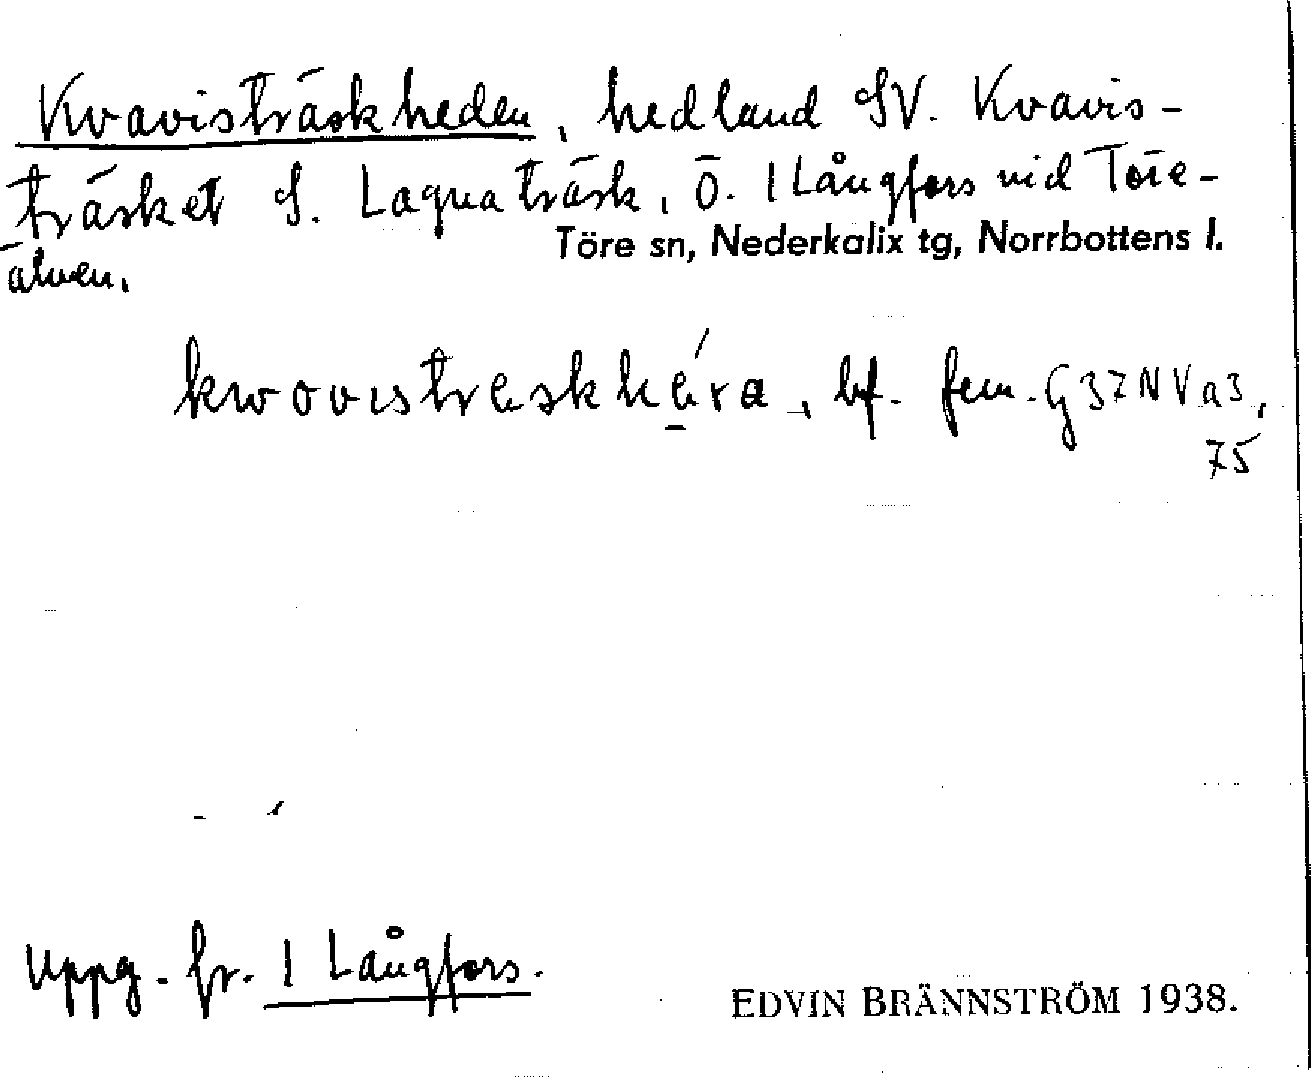 Kvavisträskheden, hedland SV. Kvavis-
träsket S. Laqua träsk, Ö. 1 Långfors vid Töre-
Töre sn, Nederkalix tg, Norrbottens l.
älven.
kwovıstreskhéra, bf. fem. G37NVa3,
75
Uppg. fr. 1 Långfors.
EDVIN BRÄNNSTRÖM 1938.